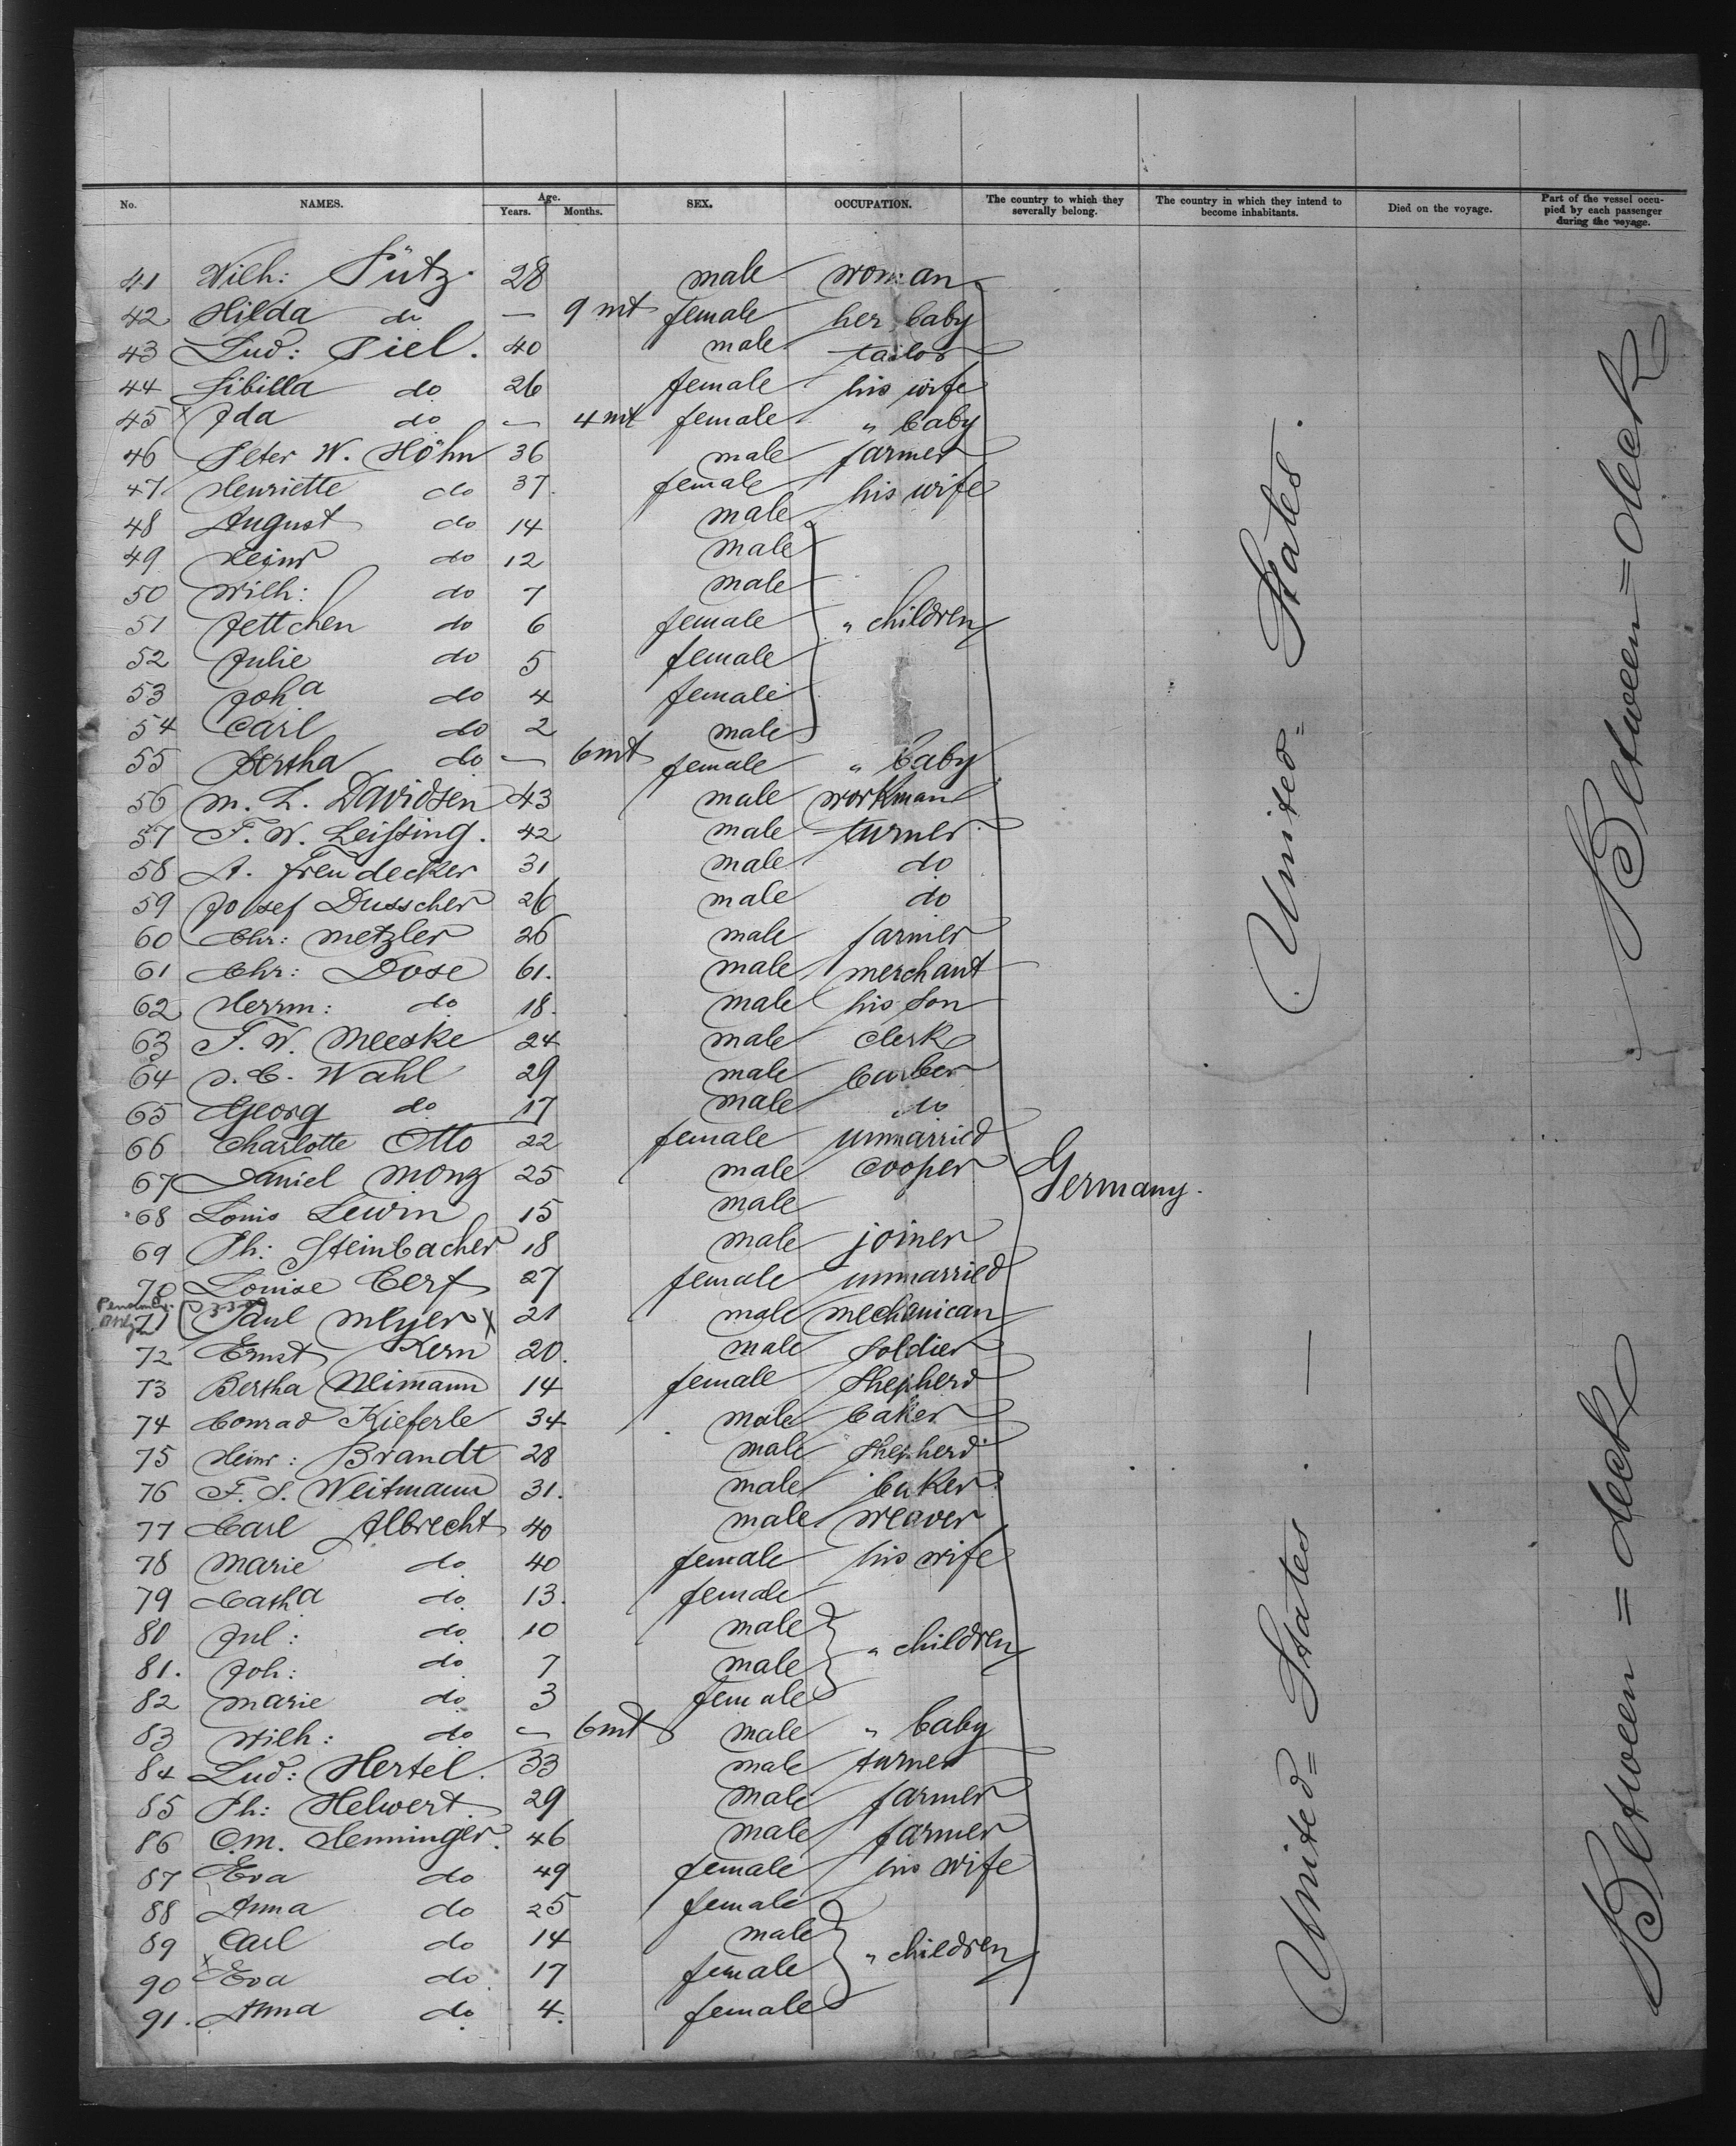 No. NAMES. Age. Years. Months. SEX. OCCUPATION. The country to which they severally belong. The country in which they intend to become inhabitants. Died on the voyage. Part of the vessel occupied by each passenger during the voyage.
41 Wilh: Pütz 28 male woman
42 Hilda do — 9 mt female her baby
43 Lud: Piel. 40 male tailor
44 Sibilla do 26 female his wife
45 Ida do — 4 mt female " baby
46 Peter W. Höhn 36 male farmer
47 Henriette do 37. female his wife
48 August do 14 male
49 Heinr do 12 male
50 Wilh: do 7 male
51 Jettchen do 6 female " children
52 Julie do 5 female
53 Joha do 4 female
54 Carl do 2 male
55 Bertha do — 6 mt female " baby
56 M. L. Davidsen 43 male workman
57 F. W. Leissing. 42 male turner
58 A. Freudecker 31 male do
59 Josef Dusscher 26 male do
60 Chr: Metzler 26 male farmer
61 Chr: Dose 61. male merchant
62 Herrm: do 18. male his son
63 F. W. Meeske 24 male clerk
64 C. Wahl 29 male barber
65 Georg do 17 male do
66 Charlotte Otto 22 female unmarried
67 Daniel Monz 25 male cooper
Germany.
68 Louis Lewin 15 male
69 Ph: Steinbacher 18 male joiner
70 Louise Cerf 27 female unmarried
71 Paul Meyer x 21 male mechanican
72 Ernst Kern 20. male soldier
73 Bertha Neimann 14 female shepherd
74 Conrad Kieferle 34 male baker
75 Heinr: Brandt 28 male shepherd
76 F. S. Weitmann 31. male baker
77 Carl Albrecht 40 male weaver
78 Marie do 40 female his wife
79 Catha do 13. female
80 Jul: do 10 male " children
81. Joh: do 7 male
82 Marie do 3 female
83 Wilh: do — 6 mt male " baby
84 Lud: Hertel. 33 male turner
85 Ph: Helwert. 29 male farmer
86 C. M. Henninger. 46 male farmer
87 Eva do 49 female his wife
88 Anna do 25 female
89 Carl do 14 male " children
90 x Eva do 17 female
91. Anna do 4. female
United = States.
United = States. —
Between = deck
Between = deck